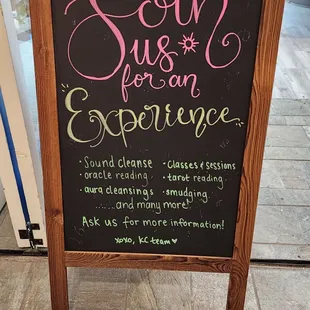 Join
us
for an
Experience
· Sound cleanse · Classes & sessions
oracle reading · tarot reading
· aura cleansings · smudging
......and many more!
Ask us for more information!
xoxo, KC team ♥